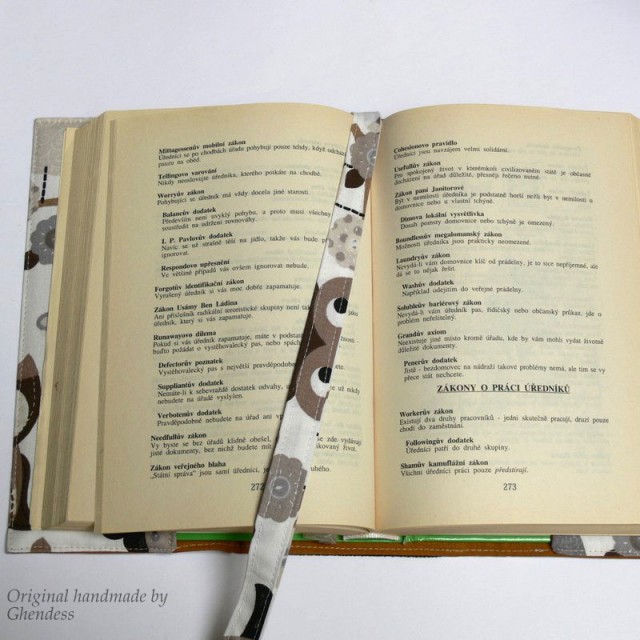 Mittagessenův mobilní zákon
Úředníci se po chodbách úřadu pohybují pouze tehdy, když odchá
pauzu na oběd.
Telfingovo varování
Nikdy neoslovujte úředníka, kterého potkáte na chodbě.
Worryův zákon
Pohybující se úředník má vždy docela jiné starosti.
Balancův dodatek
Především není uvyklý pohybu, a proto musí všechny
soustředit na udržení rovnováhy.
I. P. Pavlovův dodatek
Navíc se už strašně těší na jídlo, takže vás bude p
ignorovat.
Respondovo upřesnění
Ve většině případů vás ovšem ignorovat nebude.
Forgotův identifikační zákon
Vyrušený úředník si vás moc dobře zapamatuje.
Zákon Usámy Ben Ládina
Ani příslušník radikální teroristické skupiny není tak
úředník, který si vás zapamatuje.
Runawayovo dilema
Pokud si vás úředník zapamatuje, máte v podstatě
buďto požádat o vystěhovalecký pas, nebo spách
Defectorův poznatek
Vystěhovalecký pas v žádném případě nedostanete
Suppliantův dodatek
Nemáte-li k sebevraždě dostatek odvahy, s už nikdy
nebudete na úřadě vyslyšen.
Verbotenův dodatek
Pravděpodobně nebudete na úřad ani v
Needfullův zákon
Vy byste se bez úřadů klidně obešel, že se zde vydávají
jisté dokumenty, bez nichž nikovaný život.
Zákon veřejného blaha
„Státní správa" jsou sami úředníci, j ubého.
272
Cohesionovo pravidlo
Úředníci jsou navzájem velmi solidární.
Usefullův zákon
Pro spokojený život v kterémkoli civilizovaném státě je občasné
docházení na úřad důležité, přesněji řečeno nutné.
Zákon paní Janitorové
Být v nemilosti úředníka je podstatně horší nežli být v nemilosti u
domovnice nebo u vlastní tchýně.
Dimova lokální vysvětlivka
Dosah pomsty domovnice nebo tchýně je omezený.
Boundlessův megalomanský zákon
Možnosti úředníků jsou prakticky neomezené.
Laundryův zákon
Nevydá-li vám domovnice klíč od prádelny, je to sice nepříjemné, ale
dá se to nějak řešit.
Washův dodatek
Například odejitím do veřejné prádelny.
Solubleův bariérový zákon
Nevydá-li vám úředník pas, řidičský nebo občanský průkaz, jde o
problém neřešitelný.
Grandův axiom
Neexistuje jiné místo kromě úřadu, kde by vám mohli vydat životně
důležité dokumenty.
Penerův dodatek
Jistě - bezdomovec na nádraží takové problémy nemá, ale tím se vy
přece stát nechcete.
ZÁKONY O PRÁCI ÚŘEDNÍKŮ
Workerův zákon
Existují dva druhy pracovníků - jedni skutečně pracují, druzí pouze
chodí do zaměstnání.
Followingův dodatek
Úředníci patří do druhé skupiny.
Shamův kamuflážní zákon
Všichni úředníci práci pouze předstírají.
273
Original handmade by
Ghendess